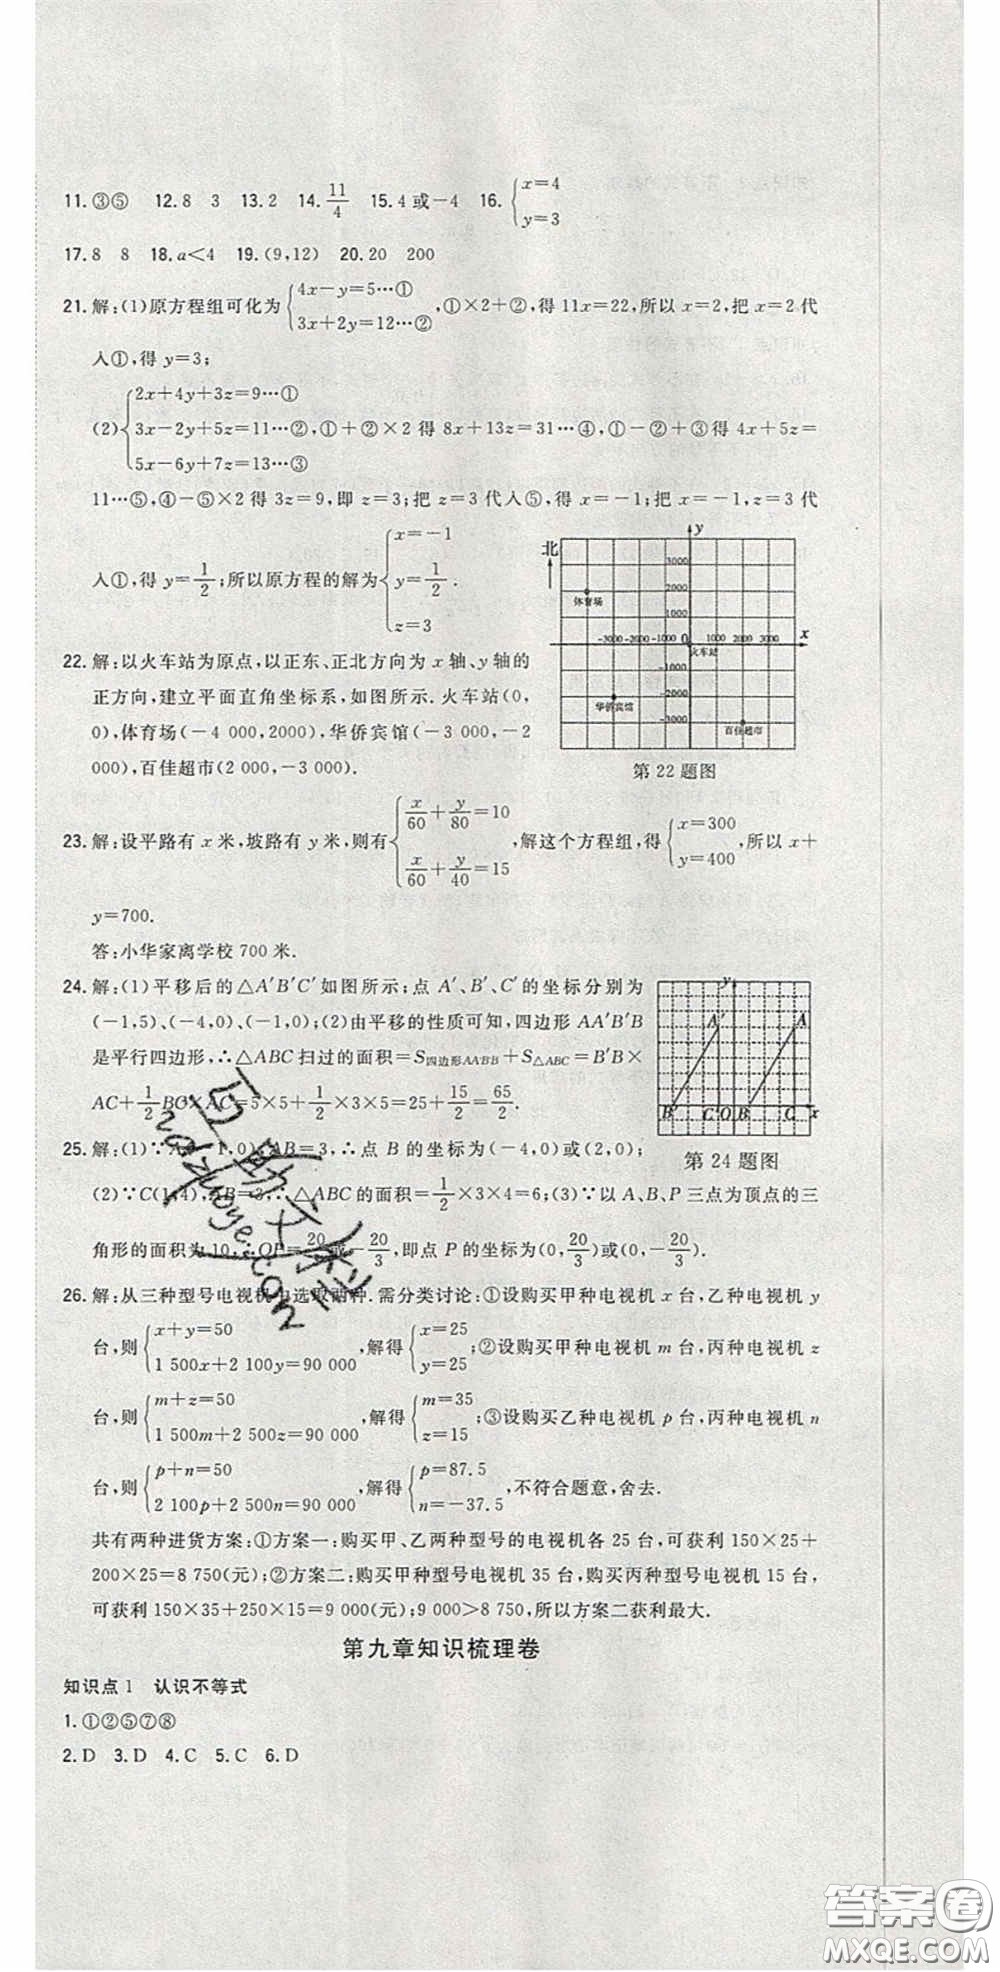 11.③⑤ 12.8 3 13.2 14.11/4 15.4或-4 16.{x=4 y=3
17.8 8 18.a<4 19.(9,12) 20.20 200
21.解:(1)原方程组可化为{4x-y=5…① 3x+2y=12…②,①×2+②,得11x=22,所以x=2,把x=2代
入①,得y=3;
(2){2x+4y+3z=9…① 3x-2y+5z=11…② 5x-6y+7z=13…③,①+②×2得8x+13z=31…④,①-②+③得4x+5z=
11…⑤,④-⑤×2得3z=9,即z=3;把z=3代入⑤,得x=-1;把x=-1,z=3代
入①,得y=1/2;所以原方程的解为{x=-1 y=1/2 z=3.
北 y
3000
2000
体育场
1000
-3000 -2000 -1000 0 1000 2000 3000 x
火车站
-1000
-2000
华侨宾馆
-3000
百佳超市
第22题图
22.解:以火车站为原点,以正东、正北方向为x轴、y轴的
正方向,建立平面直角坐标系,如图所示.火车站(0,
0),体育场(-4 000,2000),华侨宾馆(-3 000,-2
000),百佳超市(2 000,-3 000).
23.解:设平路有x米,坡路有y米,则有{x/60+y/80=10 x/60+y/40=15,解这个方程组,得{x=300 y=400,所以x+
y=700.
答:小华家离学校700米.
24.解:(1)平移后的△A′B′C′如图所示;点A′、B′、C′的坐标分别为
(-1,5)、(-4,0)、(-1,0);(2)由平移的性质可知,四边形AA′B′B
是平行四边形,∴△ABC扫过的面积=S四边形AA′B′B+S△ABC=B′B×
AC+1/2BC×AC=5×5+1/2×3×5=25+15/2=65/2.
y
A′ A
B′ C′ O B C x
第24题图
25.解:(1)∵A(-1,0),AB=3,∴点B的坐标为(-4,0)或(2,0);
(2)∵C(1,4),AB=3,∴△ABC的面积=1/2×3×4=6;(3)∵以A、B、P三点为顶点的三
角形的面积为10,∴OP=20/3或-20/3,即点P的坐标为(0,20/3)或(0,-20/3).
26.解:从三种型号电视机中选取两种.需分类讨论:①设购买甲种电视机x台,乙种电视机y
台,则{x+y=50 1 500x+2 100y=90 000,解得{x=25 y=25;②设购买甲种电视机m台,丙种电视机z
台,则{m+z=50 1 500m+2 500z=90 000,解得{m=35 z=15;③设购买乙种电视机p台,丙种电视机n
台,则{p+n=50 2 100p+2 500n=90 000,解得{p=87.5 n=-37.5,不符合题意,舍去.
共有两种进货方案:①方案一:购买甲、乙两种型号的电视机各25台,可获利150×25+
200×25=8 750(元);②方案二:购买甲种型号电视机35台,购买丙种型号电视机15台,
可获利150×35+250×15=9 000(元);9 000>8 750,所以方案二获利最大.
第九章知识梳理卷
知识点1 认识不等式
1.①②⑤⑦⑧
2.D 3.D 4.C 5.C 6.D
答案圈
MXQE.COM